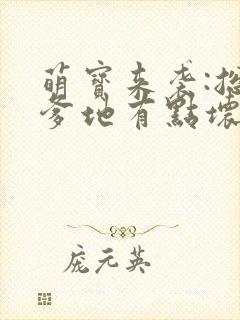 萌寶来袭:
爹地有點壞
庞元英